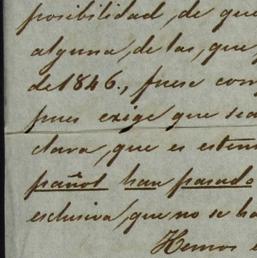 posibilidad, de que
alguna, de las, que,
de 1846., fuese com
pues exige que sea
clara, que es esten
pañol han pasado
esclusiva, que no se ha
Hemos